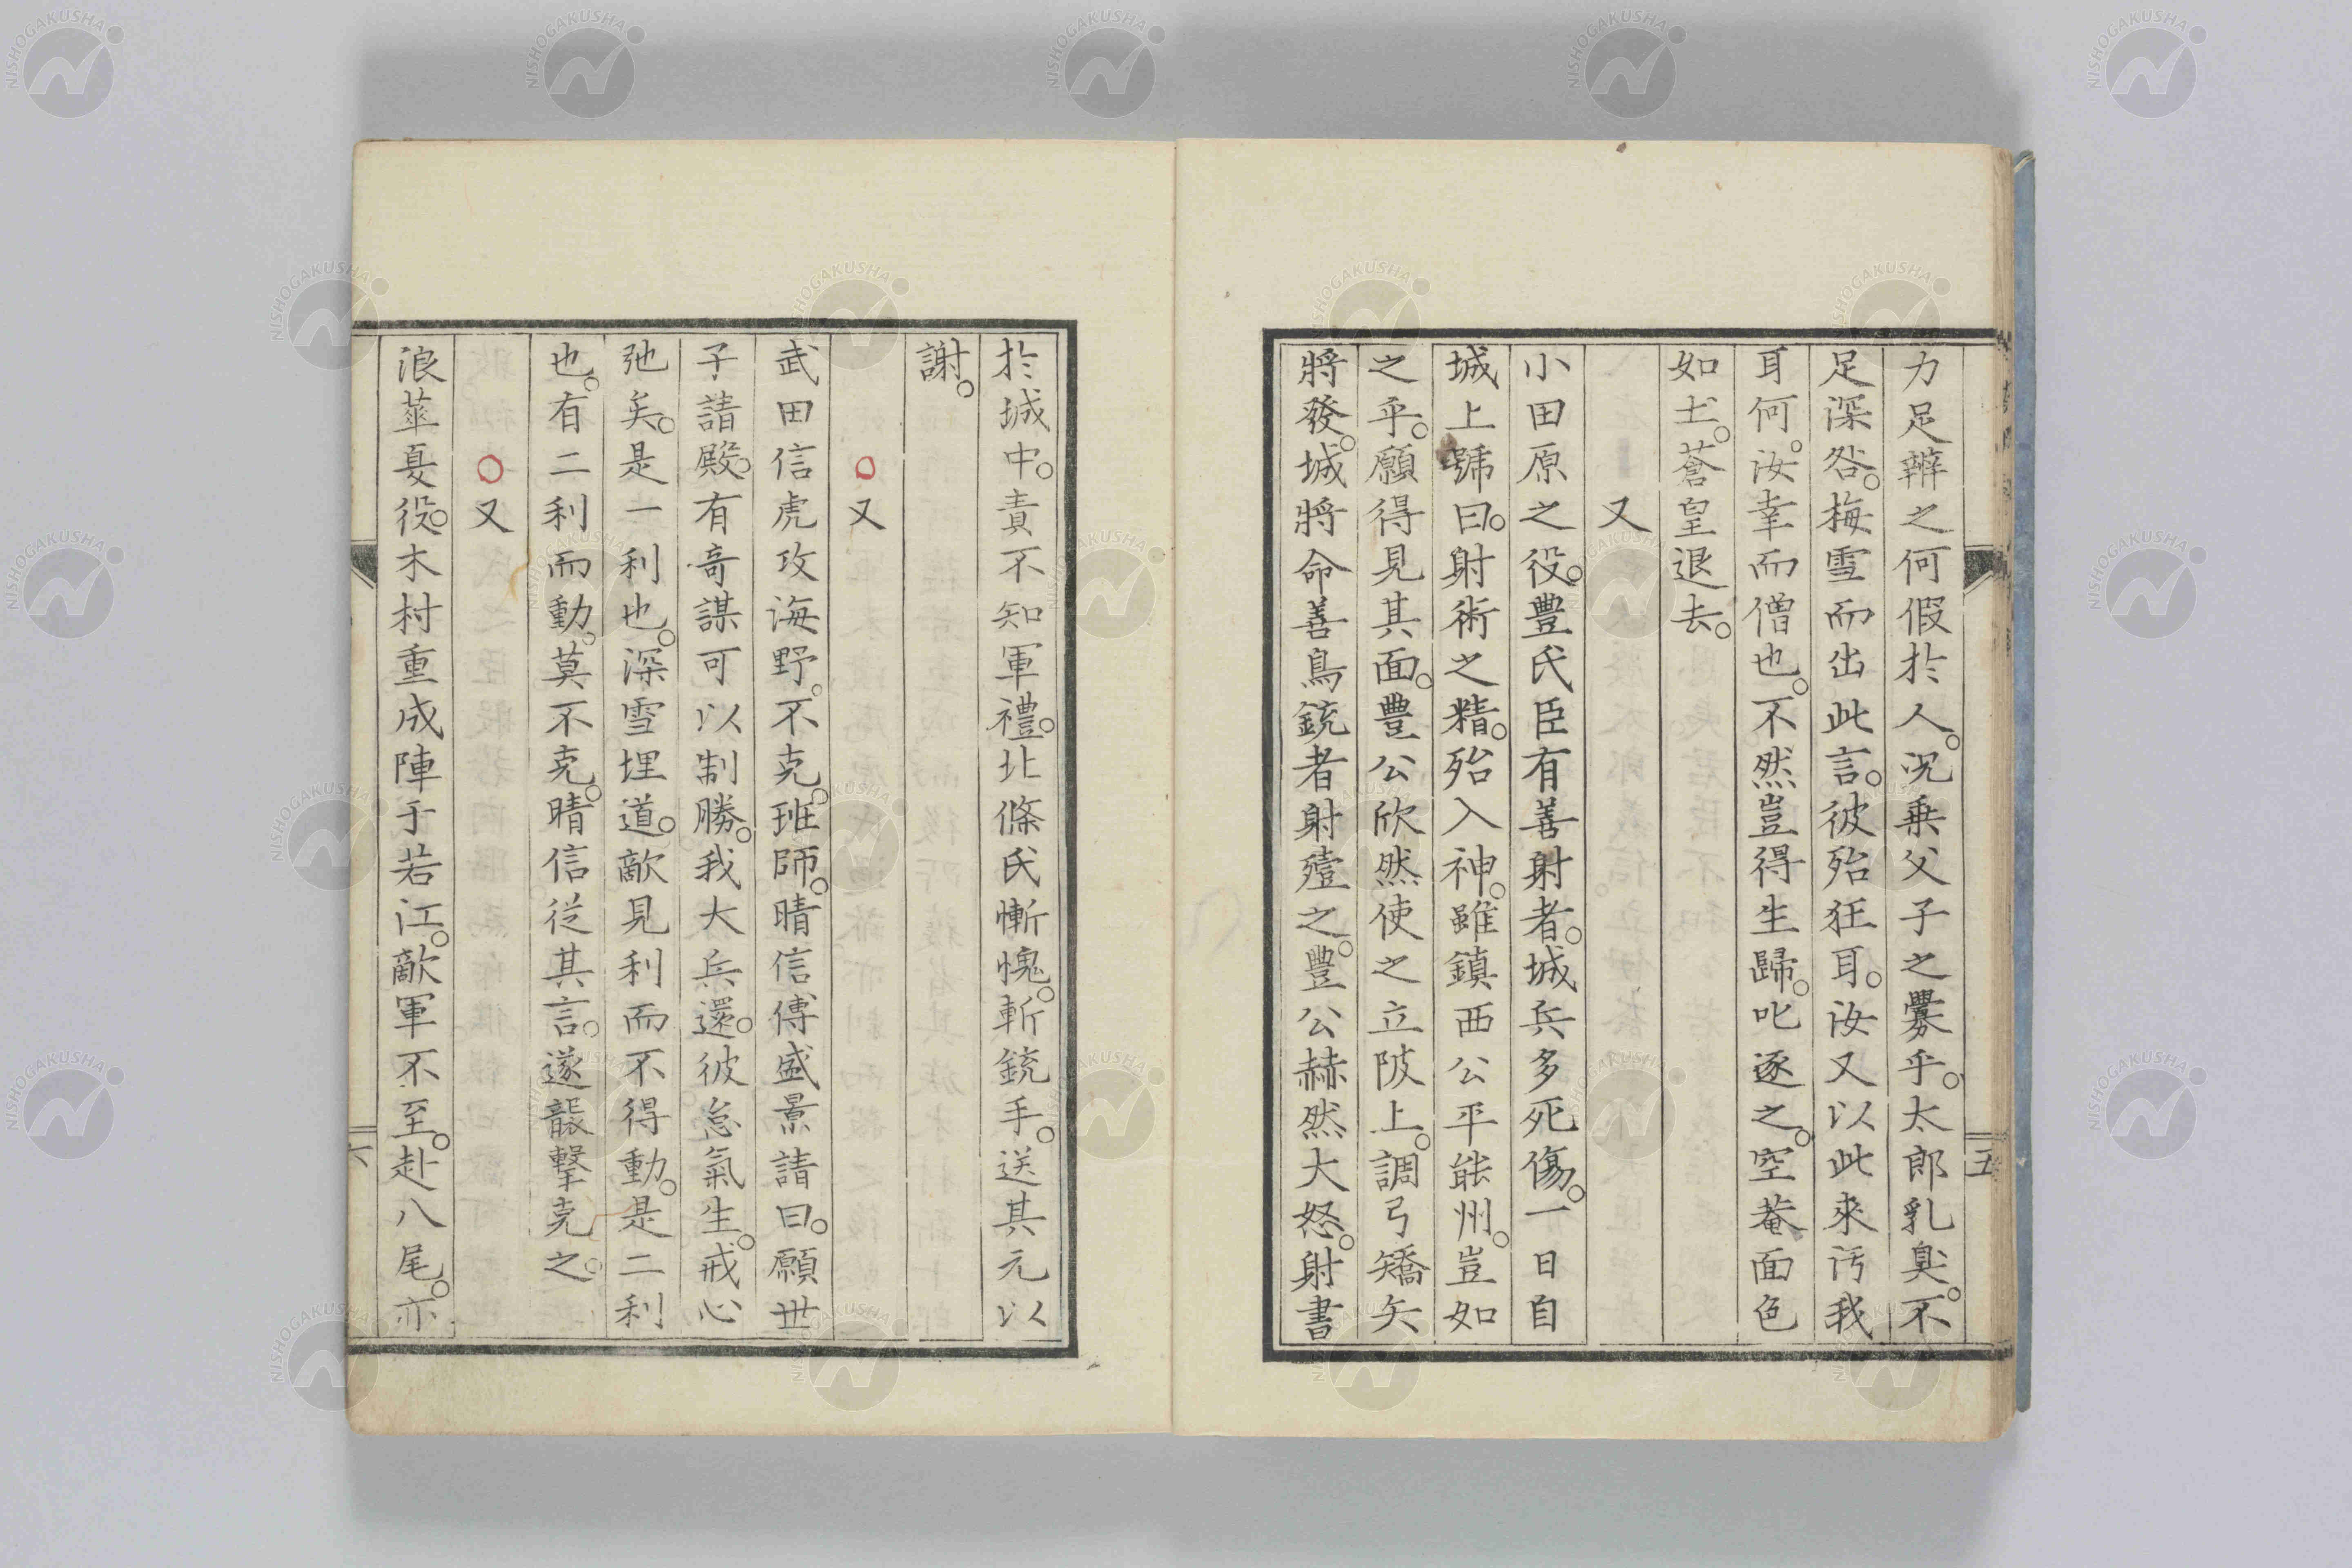 力足辨之何假於人。况乗父子之釁乎。太郎乳臭。不
足深咎。梅雪而出此言。彼殆狂耳。汝又以此來汚我
耳何。汝幸而僧也。不然豈得生歸。叱逐之。空菴面色
如土。蒼皇退去。
又
小田原之役。豊氏臣有善射者。城兵多死傷。一日自
城上號曰。射術之精。殆入神。雖鎮西公平能州。豈如
之乎。願得見其面。豊公欣然使之立陂上。調弓矯矢
將發。城將命善鳥銃者射殪之。豊公赫然大怒。射書
五
於城中。責不知軍禮。北條氏慚愧。斬銃手。送其元以
謝。
○又
武田信虎攻海野。不克。班師。晴信傅盛景請曰。願世
子請殿。有奇謀可以制勝。我大兵還。彼怠氣生。戒心
弛矣。是一利也。深雪埋道。敵見利而不得動。是二利
也。有二利而動。莫不克。晴信從其言。遂襲擊克之。
○又
浪華夏役。木村重成陣于若江。敵軍不至。赴八尾。亦
六
NISHOGAKUSHA